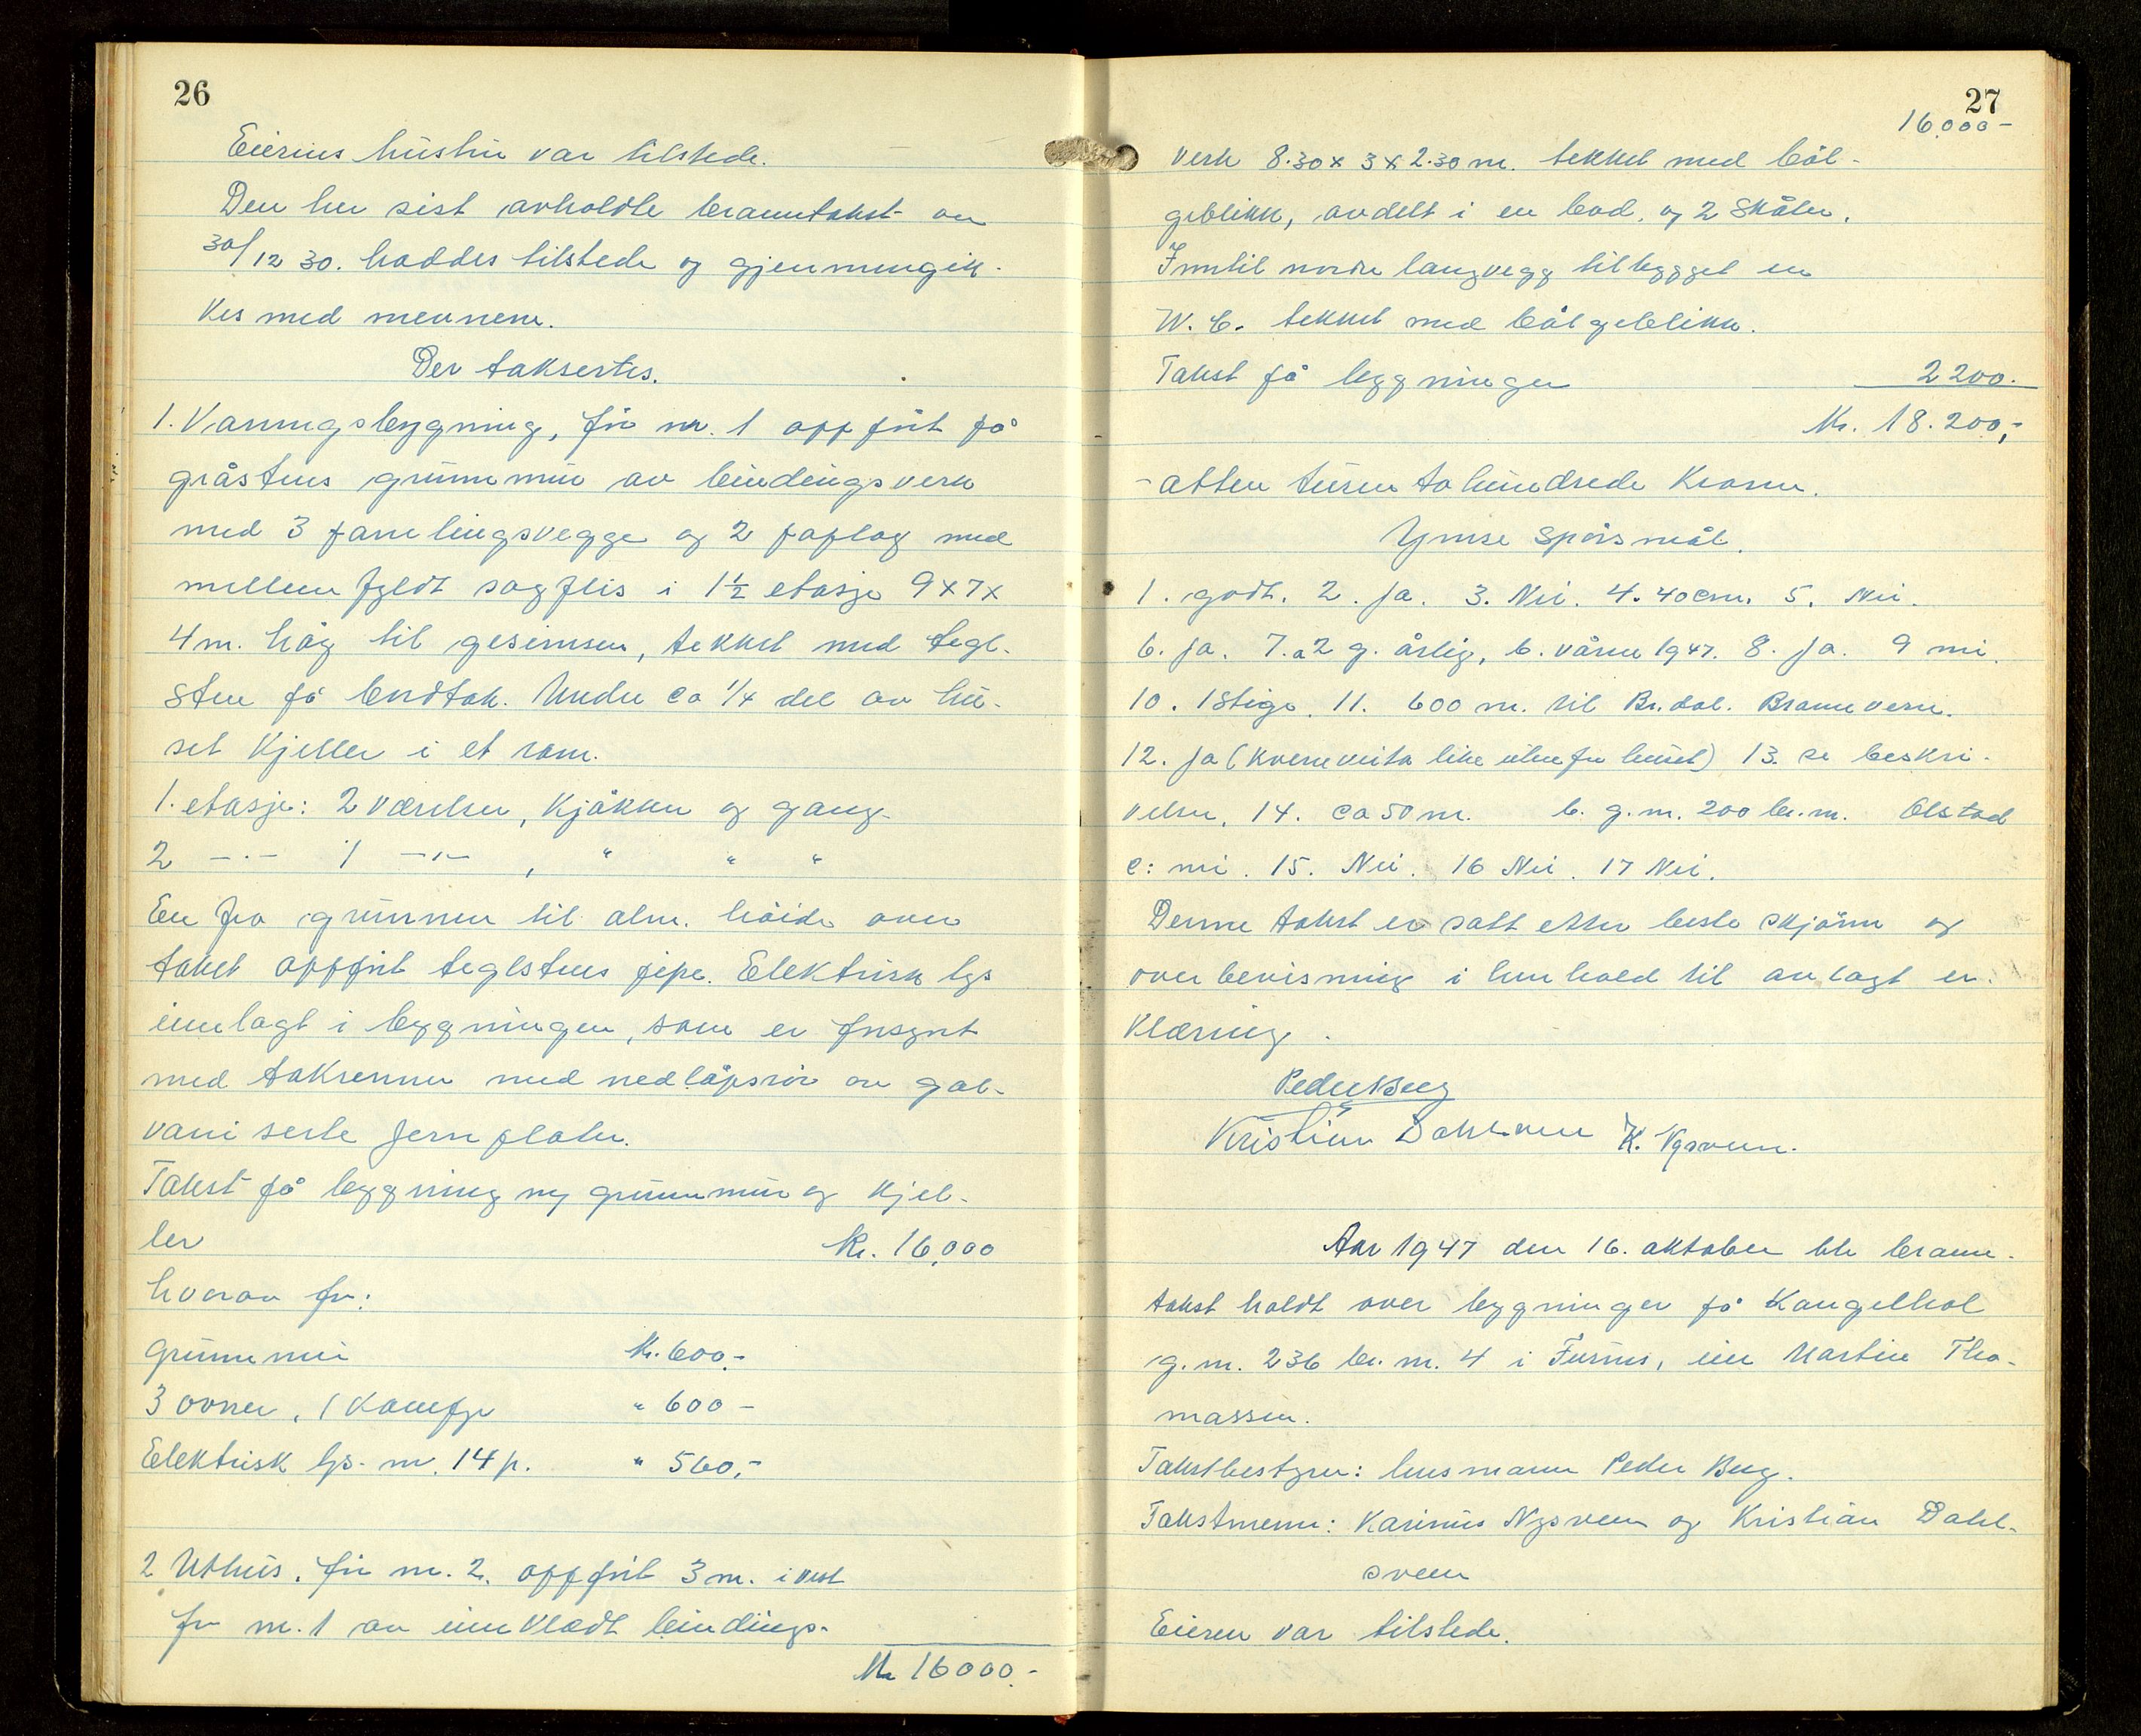 26
Eierens hustru var tilstede.
Den her sist avholdte branntakst av
30/12 30. haddes tilstede og gjennemgik-
kes med mennene.
Der taksertes.
1. Vaaningsbygning, fir nr. 1 oppført på
gråstens grunnmur av bindingsverk
med 3 panelingsvegge og 2 paplag med
mellem fyldt sagflis i 1½ etasje 9x7x
4 m. høg til gesimsen, tekket med tegl-
sten på bordtak. Under ca 1/4 del av hu-
set Kjeller i et rom.
1. etasje: 2 værelser, Kjøkken og gang
2 -"- 1 -"- , " " "
En fra grunnen til alm. høide over
taket oppført teglstens pipe. Elektrisk lys
innlagt i bygningen, som er forsynt
med takrenner med nedløpsrør av gal-
vaniserte jernplater.
Takst på bygning og grunnmur og kjel-
ler Kr. 16,000
hvorav for:
Grunnmur Kr. 600.-
3 ovner, 1 Komfyr " 600 -
Elektrisk lys m. 14 p. " 560,-
2 Uthus. fir nr. 2. oppført 3 m. i vest
for nr. 1 av innkledt bindings-
Kr 16000.-
27
16.000 -
verk 8.30 x 3 x 2.30 m. tekket med bøl-
geblikk, avdelt i en bod, og 2 Skåler.
Inntil nordre langvegg tilbygget en
W. C. tekket med bølgeblikk.
Takst på bygningen 2200.
Kr. 18.200,-
- atten tusen to hundrede Kroner.
Ymse Spørsmål.
1. godt. 2. Ja. 3. Nei. 4. 40 cm. 5. Nei.
6. Ja. 7. a 2 g. årlig, b. våren 1947. 8. Ja. 9 nei.
10. 1 Stige. 11. 600 m. til Br.dal. Brannvern.
12. Ja (Kverneveita like utenfor huset) 13. se beskri-
velsen. 14. ca 50 m. b. g.nr. 200 br.nr. Olstad
c: nei. 15. Nei. 16 Nei. 17 Nei.
Denne takst er satt etter beste skjønn og
overbevisning i henhold til avlagt er-
klæring.
Peder Berg
Kristian Dahlsveen K. Nysveen.
Aar 1947 den 16. oktober ble brann-
takst holdt over bygninger på Kangelhol
g.nr. 236 br. nr. 4 i Furnes, eier Martin Tho-
massen.
Takstbestyrer: lensmann Peder Berg.
Takstmenn: Karinus Nysveen og Kristian Dahl-
sveen
Eieren var tilstede.